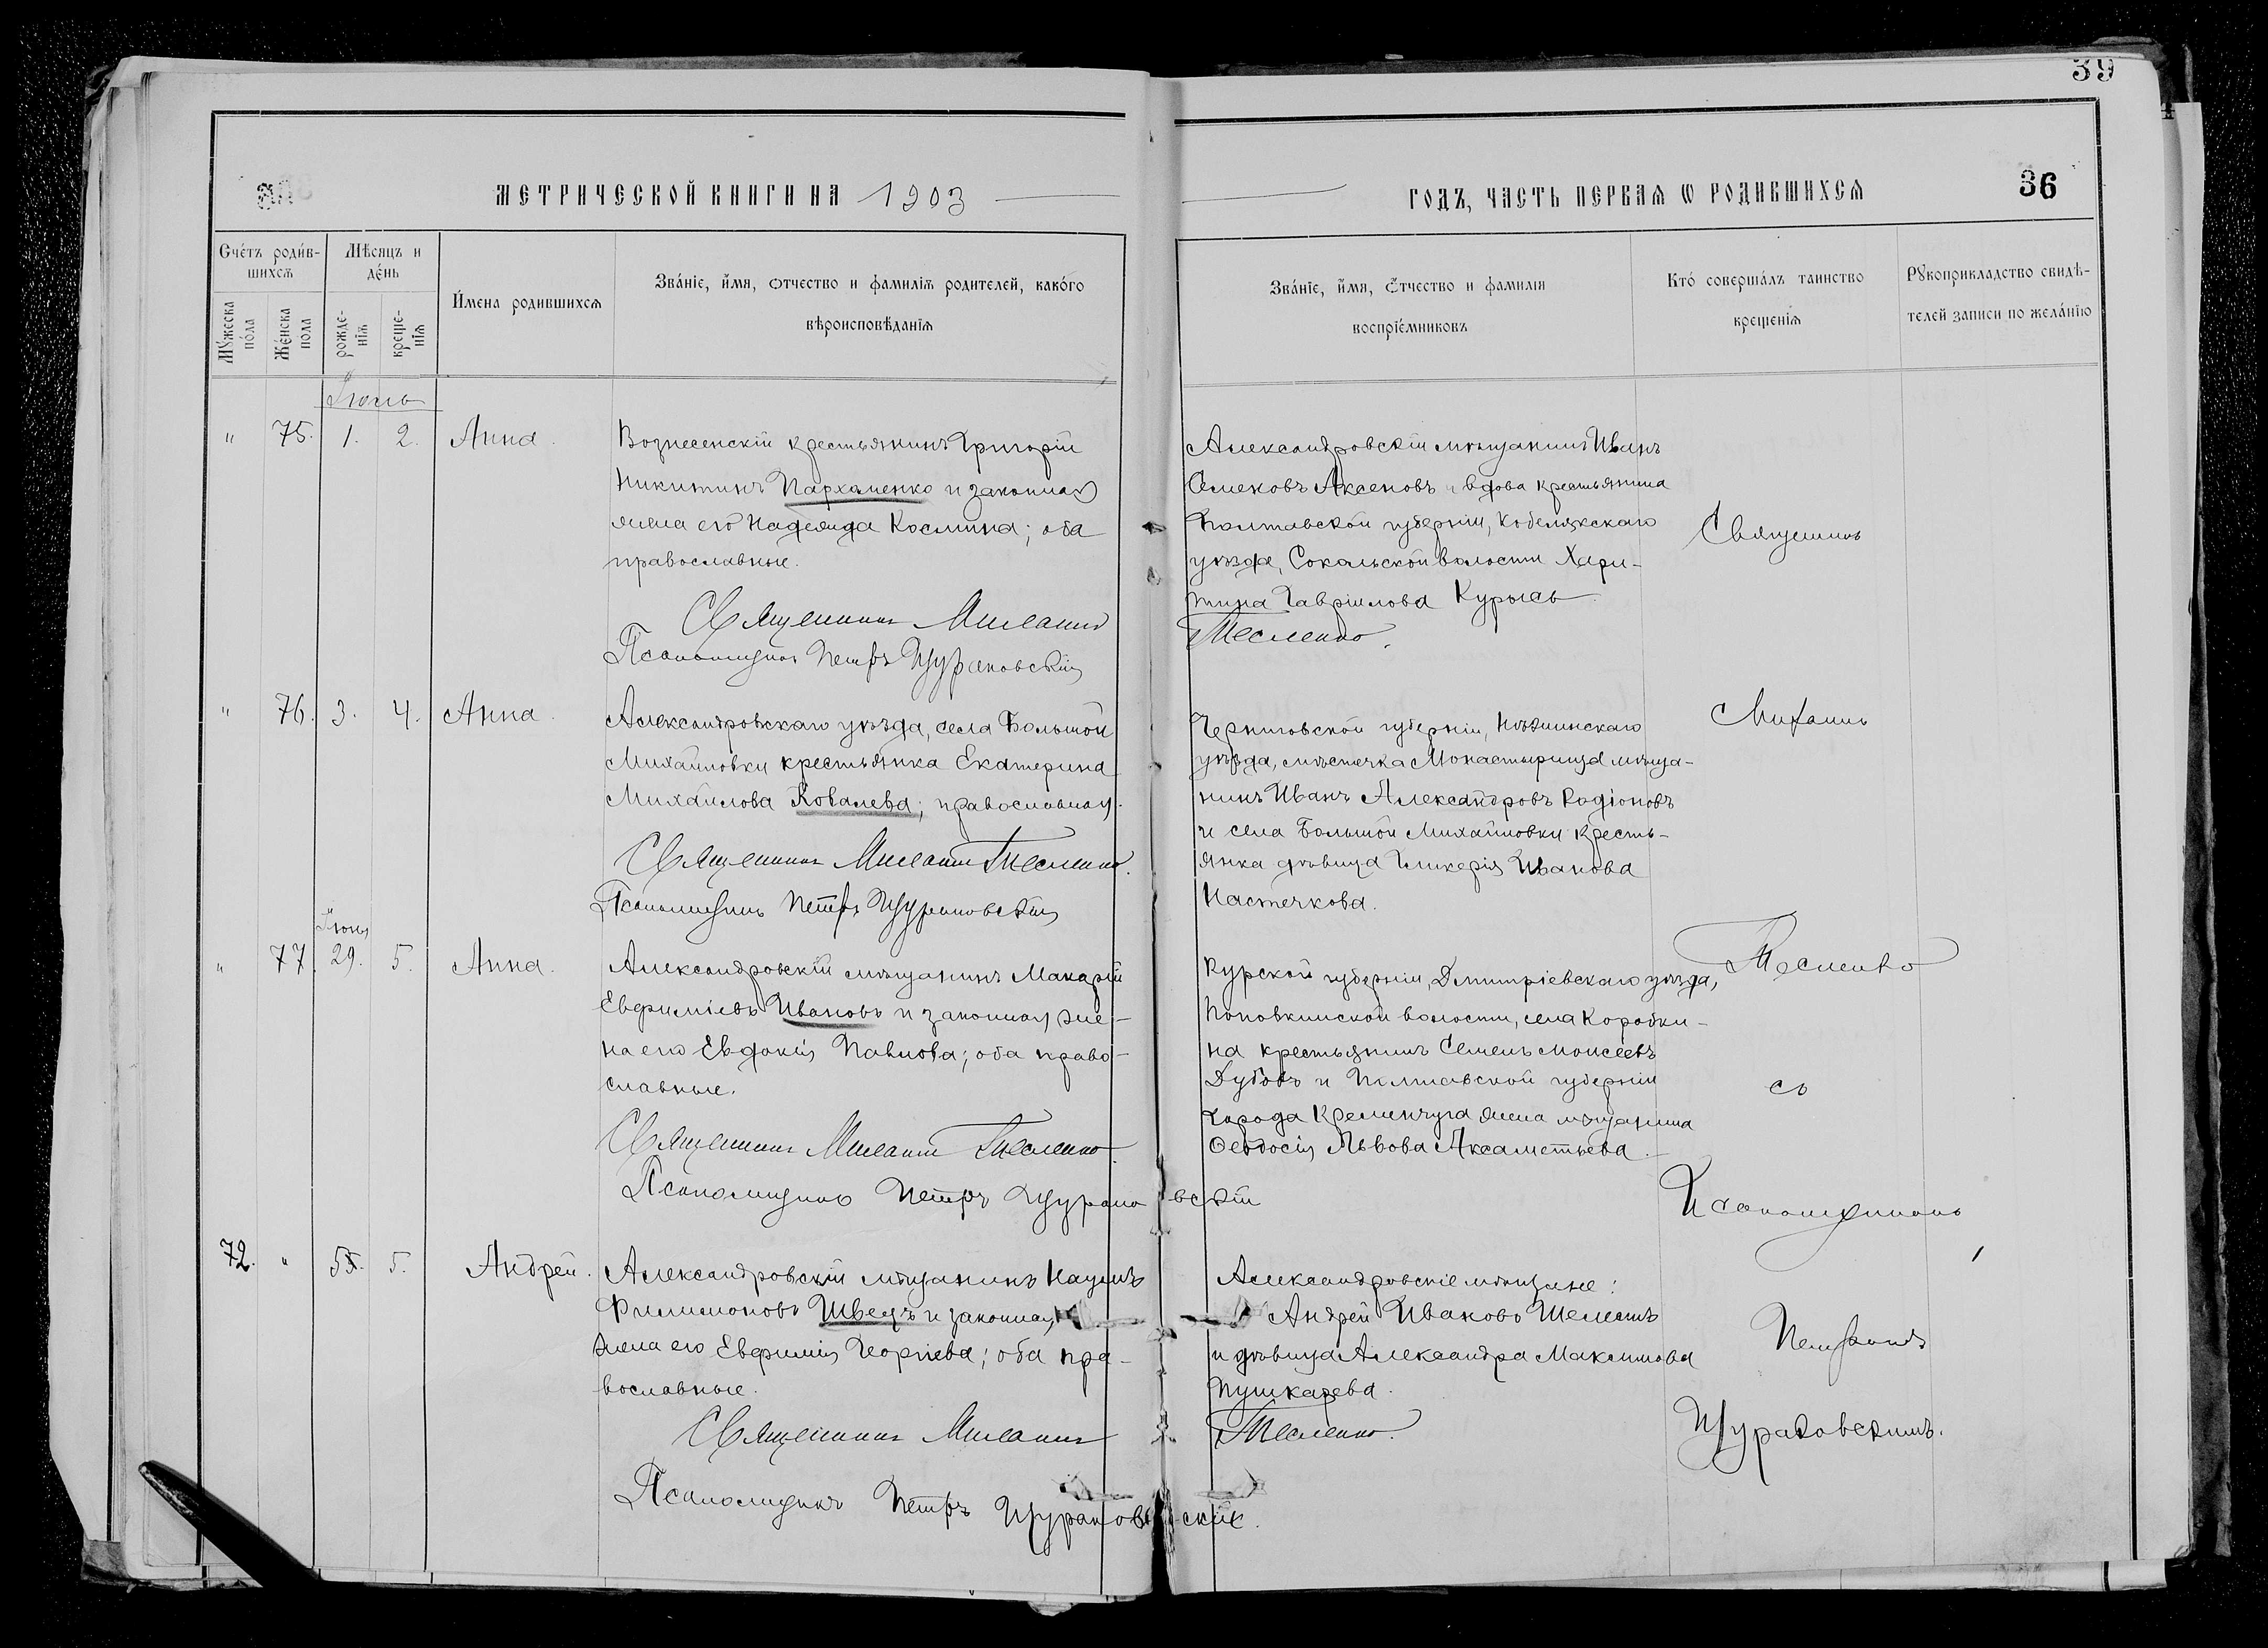 39
МЕТРИЧЕСКОЙ КНИГИ НА 1903
ГОДЪ, ЧАСТЬ ПЕРВАѦ Ѡ РОДИВШИХСѦ
36
Счетъ родив-
шихсѧ
Мѣсяцъ и
день
Мужеска
пола
Женска
пола
рожде-
нїѧ
креще-
нїѧ
Имена родившихсѧ
Званїе, имя, отчество и фамилїѧ родителей, какого
вѣроисповѣданїѧ
Званїе, имя, отчество и фамилїя
воспрїемниковъ
Кто совершалъ таинство
крещенїѧ
Рукоприкладство свидѣ-
телей записи по желанїю
Іюль
" 75. 1. 2. Анна.
Вознесенскій крестьянинъ Григорій
Никитинъ Пархоменко и законная
жена его Надежда Космина; оба
православные.
Священникъ Михаилъ
Псаломщикъ Петръ Щураковскій
Александровскій мѣщанинъ Иванъ
Семеновъ Аксеновъ и вдова крестьянина
Полтавской губерніи, Кобелякскаго
уѣзда, Сокальской волости Хари-
тина Гавріилова Курысь.
Тесленко.
" 76. 3. 4. Анна.
Александровскаго уѣзда, села Большой
Михайловки крестьянка Екатерина
Михайлова Ковалева; православная.
Священникъ Михаилъ Тесленко.
Псаломщикъ Петръ Щураковскій
Черниговской губерніи, Нѣжинскаго
уѣзда, мѣстечка Монастырища мѣща-
нинъ Иванъ Александровъ Родіоновъ
и села Большой Михайловки кресть-
янка дѣвица Гликерія Иванова
Настечкова.
Іюня
" 77. 29. 5. Анна.
Александровскій мѣщанинъ Макарій
Евфиміевъ Ивановъ и законная же-
на его Евдокія Павлова; оба право-
славные.
Священникъ Михаилъ Тесленко.
Псаломщикъ Петръ Щураковскій
Курской губерніи, Дмитріевскаго уѣзда,
Поповкинской волости, села Коробки-
на крестьянинъ Семенъ Моисеевъ
Дубовъ и Полтавской губерніи
города Кременчуга жена мѣщанина
Ѳеодосія Львова Аксаметьева.
72. " 5. 5. Андрей.
Александровскій мѣщанинъ Наумъ
Филимоновъ Швецъ и законная
жена его Евфимія Георгіева; оба пра-
вославные.
Священникъ Михаилъ
Псаломщикъ Петръ Щураковскій.
Александровскіе мѣщане:
Андрей Ивановъ Шелестъ
и дѣвица Александра Максимова
Пушкарева.
Тесленко.
Священникъ
Михаилъ
Тесленко
съ
Псаломщикомъ
Петромъ
Щураковскимъ.